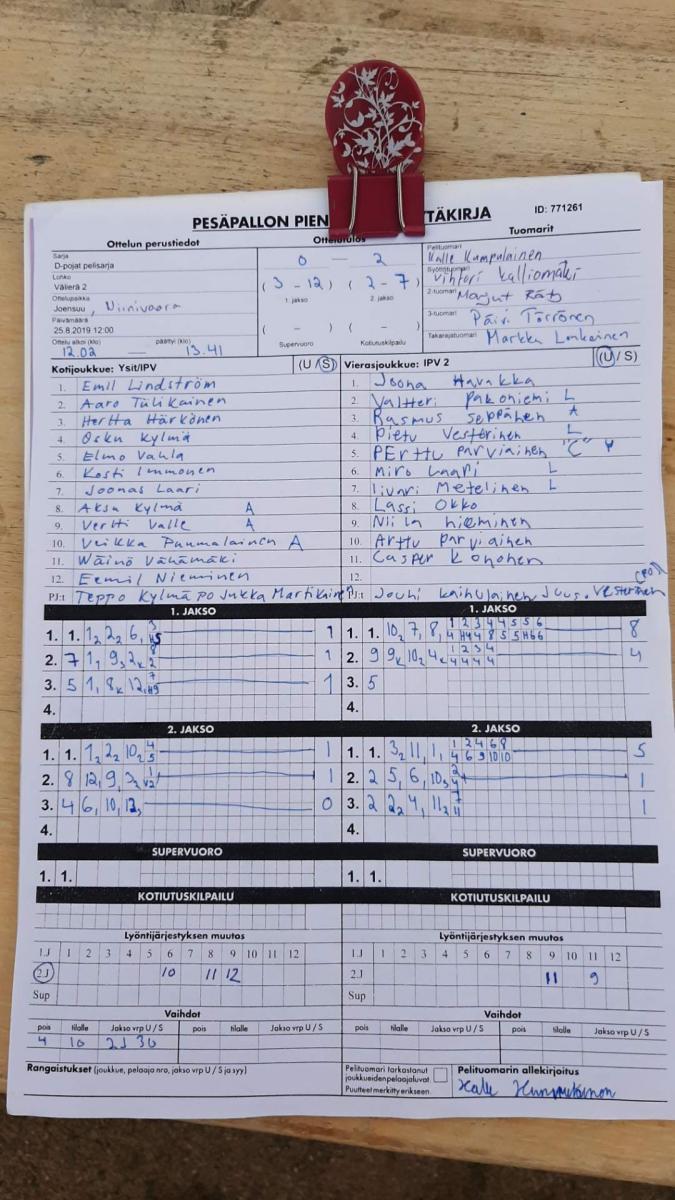 PESÄPALLON PIEN TÄKIRJA
ID: 771261
Ottelun perustiedot
Sarja
D-pojat pelisarja
Lohko
Välierä 2
Ottelupaikka
Joensuu, Niinivaara
Päivämäärä
25.8.2019 12:00
Ottelu alkoi (klo) päättyi (klo)
12.02 — 13.41
Ottelutulos
0 — 2
(3 - 12) (2 - 7)
1. jakso 2. jakso
( - ) ( - )
Supervuoro Kotiutuskilpailu
Tuomarit
Pelituomari
Kalle Kumpulainen
Syöttötuomari
Vihtori Kalliomäki
2-tuomari Marjut
3-tuomari Päivi Törrönen
Takarajatuomari Markku
Kotijoukkue: Ysit/IPV (U / S)
1. Emil Lindström
2. Aaro Tulikainen
3. Hertta Härkönen
4. Osku Kylmä
5. Elmo Vahla
6. Kosti Immonen
7. Joonas Laari
8. Aksu Kylmä A
9. Vertti Valle A
10. Veikka Puumalainen A
11. Wäinö Vähämäki
12. Eemil Nieminen
PJ:t Teppo Kylmä PO Jukka Martikainen
Vierasjoukkue: IPV 2 (U / S)
1. Joona Havukka
2. Valtteri Pakoniemi L
3. Rasmus Seppänen A
4. Pietu Vesterinen L
5. PErttu parviainen "C"
6. Miro Laari L
7. Iivari Metelinen L
8. Lassi Okko
9. Niila hieminen
10. Arttu parviainen
11. Casper Kononen
12.
PJ:t Jouhi Kaihulainen Juus. Vesterinen
1. JAKSO
1. 1. 1₂ 2₂ 6, 1
2. 7 1, 9₃ 2ₖ 1
3. 5 1, 8ₖ 12, 1
4.
1. JAKSO
1. 1. 10₂ 7, 8, 8
2. 9 9ₖ 10₂ 4ₖ 4
3. 5
4.
2. JAKSO
1. 1. 1₂ 2₂ 10₂ 1
2. 8 12, 9, 3₂ 1
3. 4 6, 10, 12₃ 0
4.
2. JAKSO
1. 1. 3₂ 11, 1, 5
2. 2 5, 6, 10₃ 1
3. 2 2₂ 4, 11₂ 1
4.
SUPERVUORO
1. 1.
SUPERVUORO
1. 1.
KOTIUTUSKILPAILU
KOTIUTUSKILPAILU
Lyöntijärjestyksen muutos
1.J 1 2 3 4 5 6 7 8 9 10 11 12
2.J 10 11 12
Sup
Lyöntijärjestyksen muutos
1.J 1 2 3 4 5 6 7 8 9 10 11 12
2.J 11 9
Sup
Vaihdot
pois tilalle Jakso vrp U / S pois tilalle Jakso vrp U / S
4 10 2J 3U
Vaihdot
pois tilalle Jakso vrp U / S pois tilalle Jakso vrp U / S
Rangaistukset (joukkue, pelaaja nro, jakso vrp U / S ja syy)
Pelituomari tarkastanut
joukkueiden pelaajaluvat.
Puutteet merkitty erikseen.
Pelituomarin allekirjoitus